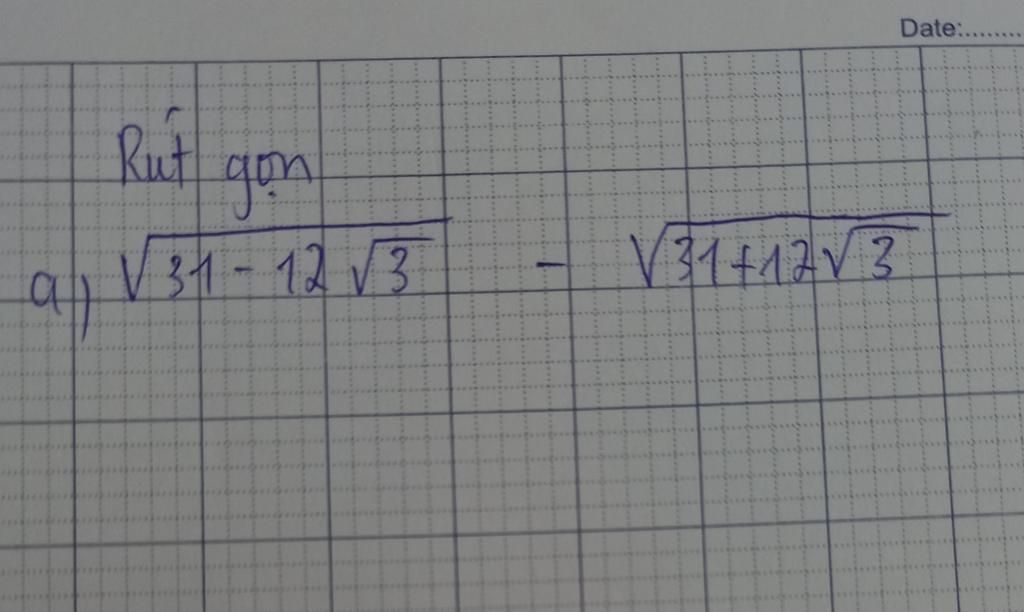 Date:........
Rút gọn
a) √31 - 12√3 - √31+12√3